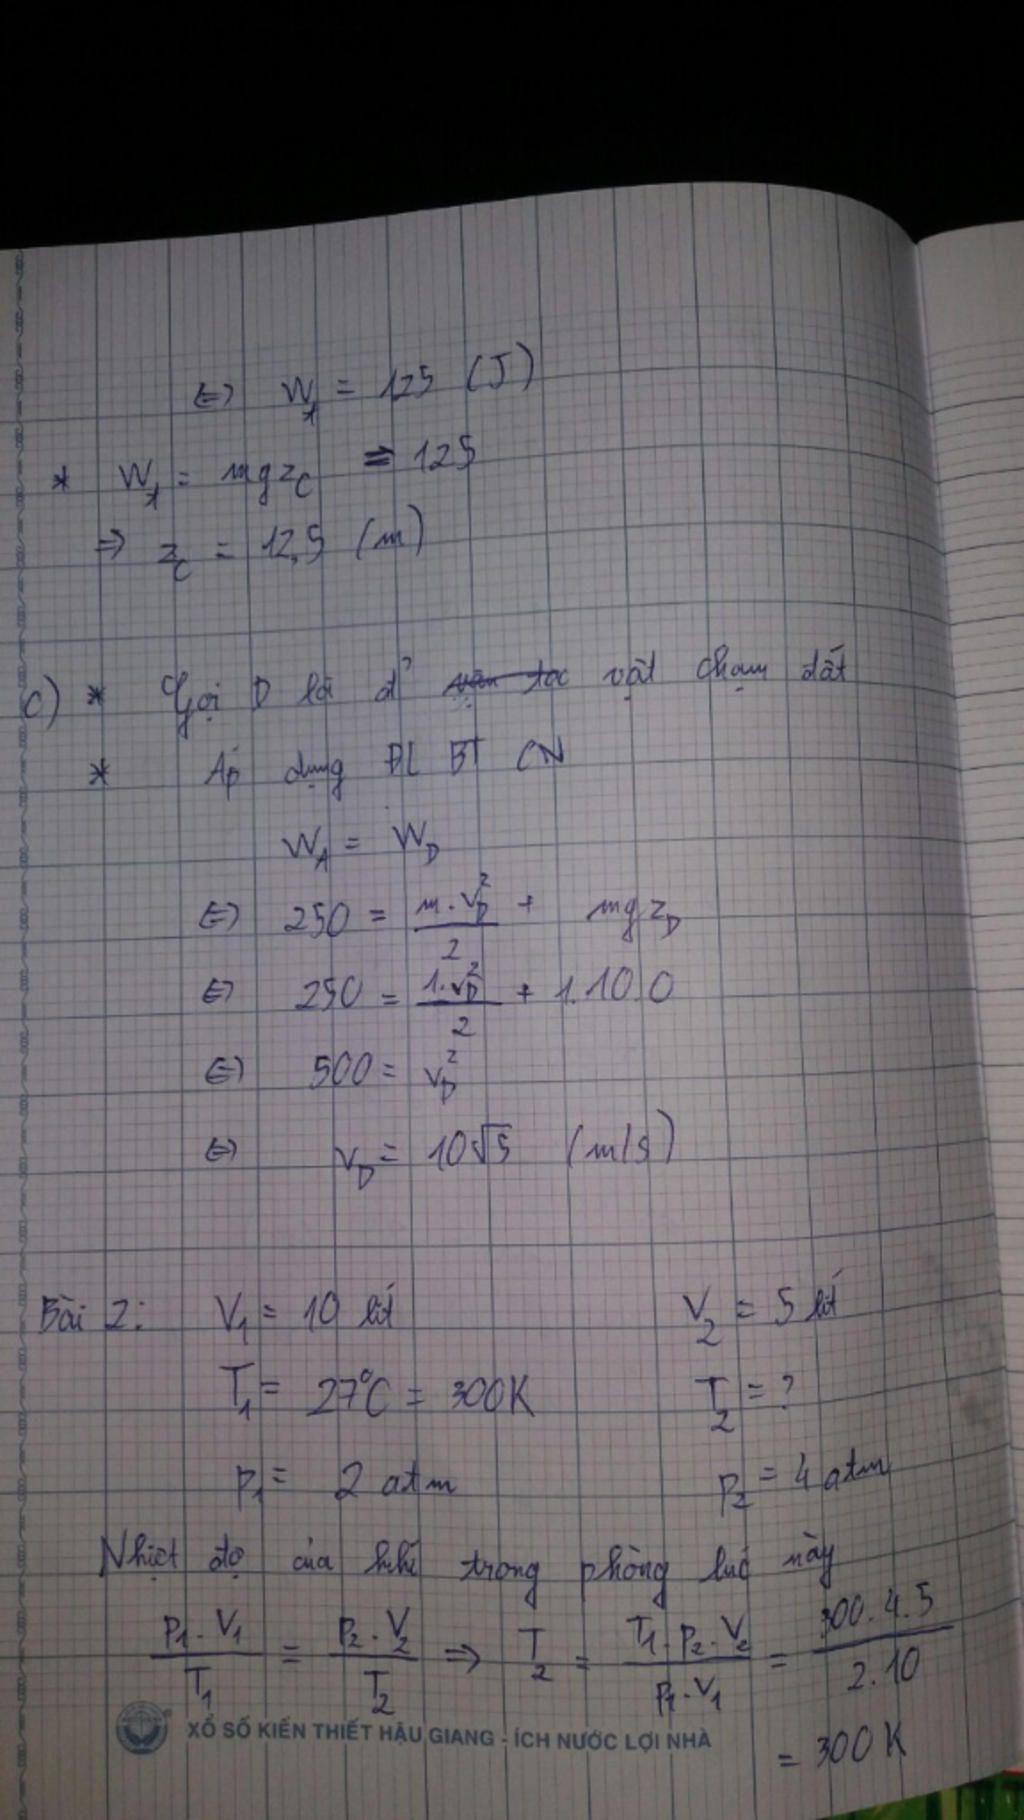 ⇔ Wt = 125 (J)
* Wt = mgzC = 125
⇒ zC = 12,5 (m)
c) * Gọi D là đ' vật chạm đất
* Áp dụng ĐL BT CN
WA = WD
⇔ 250 = m.vD²/2 + mgzD
⇔ 250 = 1.vD²/2 + 1.10.0
⇔ 500 = vD²
⇔ vD = 10√5 (m/s)
Bài 2: V1 = 10 lít V2 = 5 lít
T1 = 27°C = 300K T2 = ?
P1 = 2 atm P2 = 4 atm
Nhiệt độ của khí trong phòng lúc này
P1.V1/T1 = P2.V2/T2 ⇒ T2 = T1.P2.V2/P1.V1 = 300.4.5/2.10
XỔ SỐ KIẾN THIẾT HẬU GIANG - ÍCH NƯỚC LỢI NHÀ
= 300K